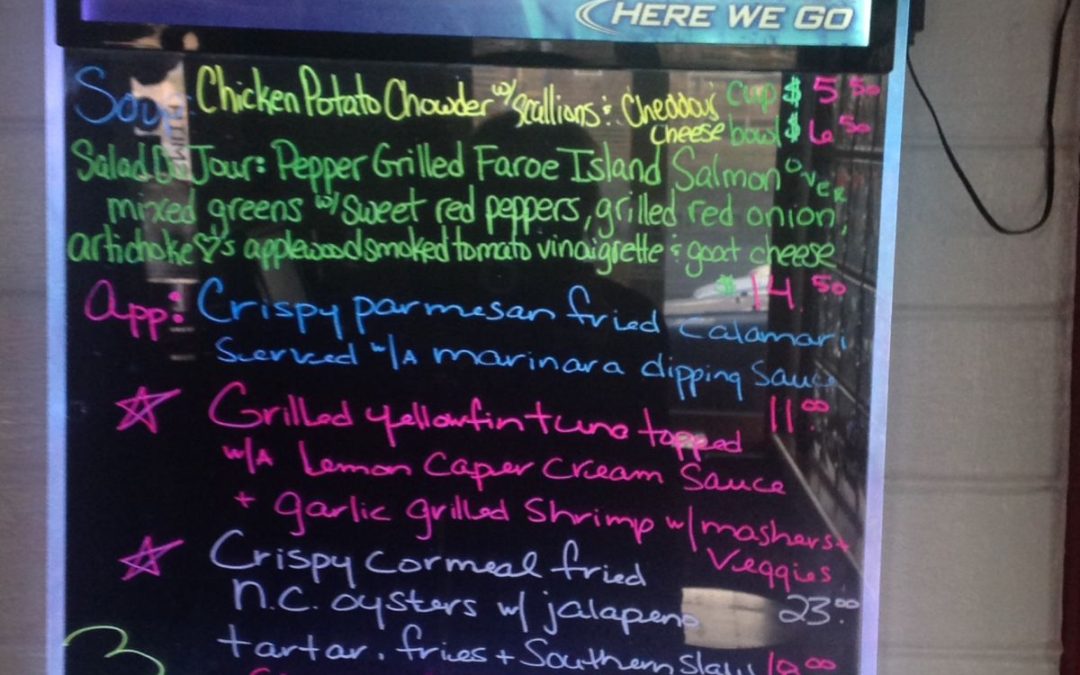 HERE WE GO
Soup: Chicken Potato Chowder w/ Scallions & Cheddar cup $ 5.50
Cheese bowl $ 6.50
Salad Du Jour: Pepper Grilled Faroe Island Salmon over
mixed greens w/ sweet red peppers, grilled red onion,
artichoke ♡'s applewood smoked tomato vinaigrette & goat cheese
$ 14.50
App: Crispy parmesan fried Calamari
Served w/A marinara dipping Sauce
11.00
Grilled yellowfin tuna topped
w/A Lemon Caper Cream Sauce
+ garlic grilled Shrimp w/ mashers +
Veggies
23.00
Crispy cormeal fried
N.C. oysters w/ jalapeno
tartar. fries + Southern Slaw